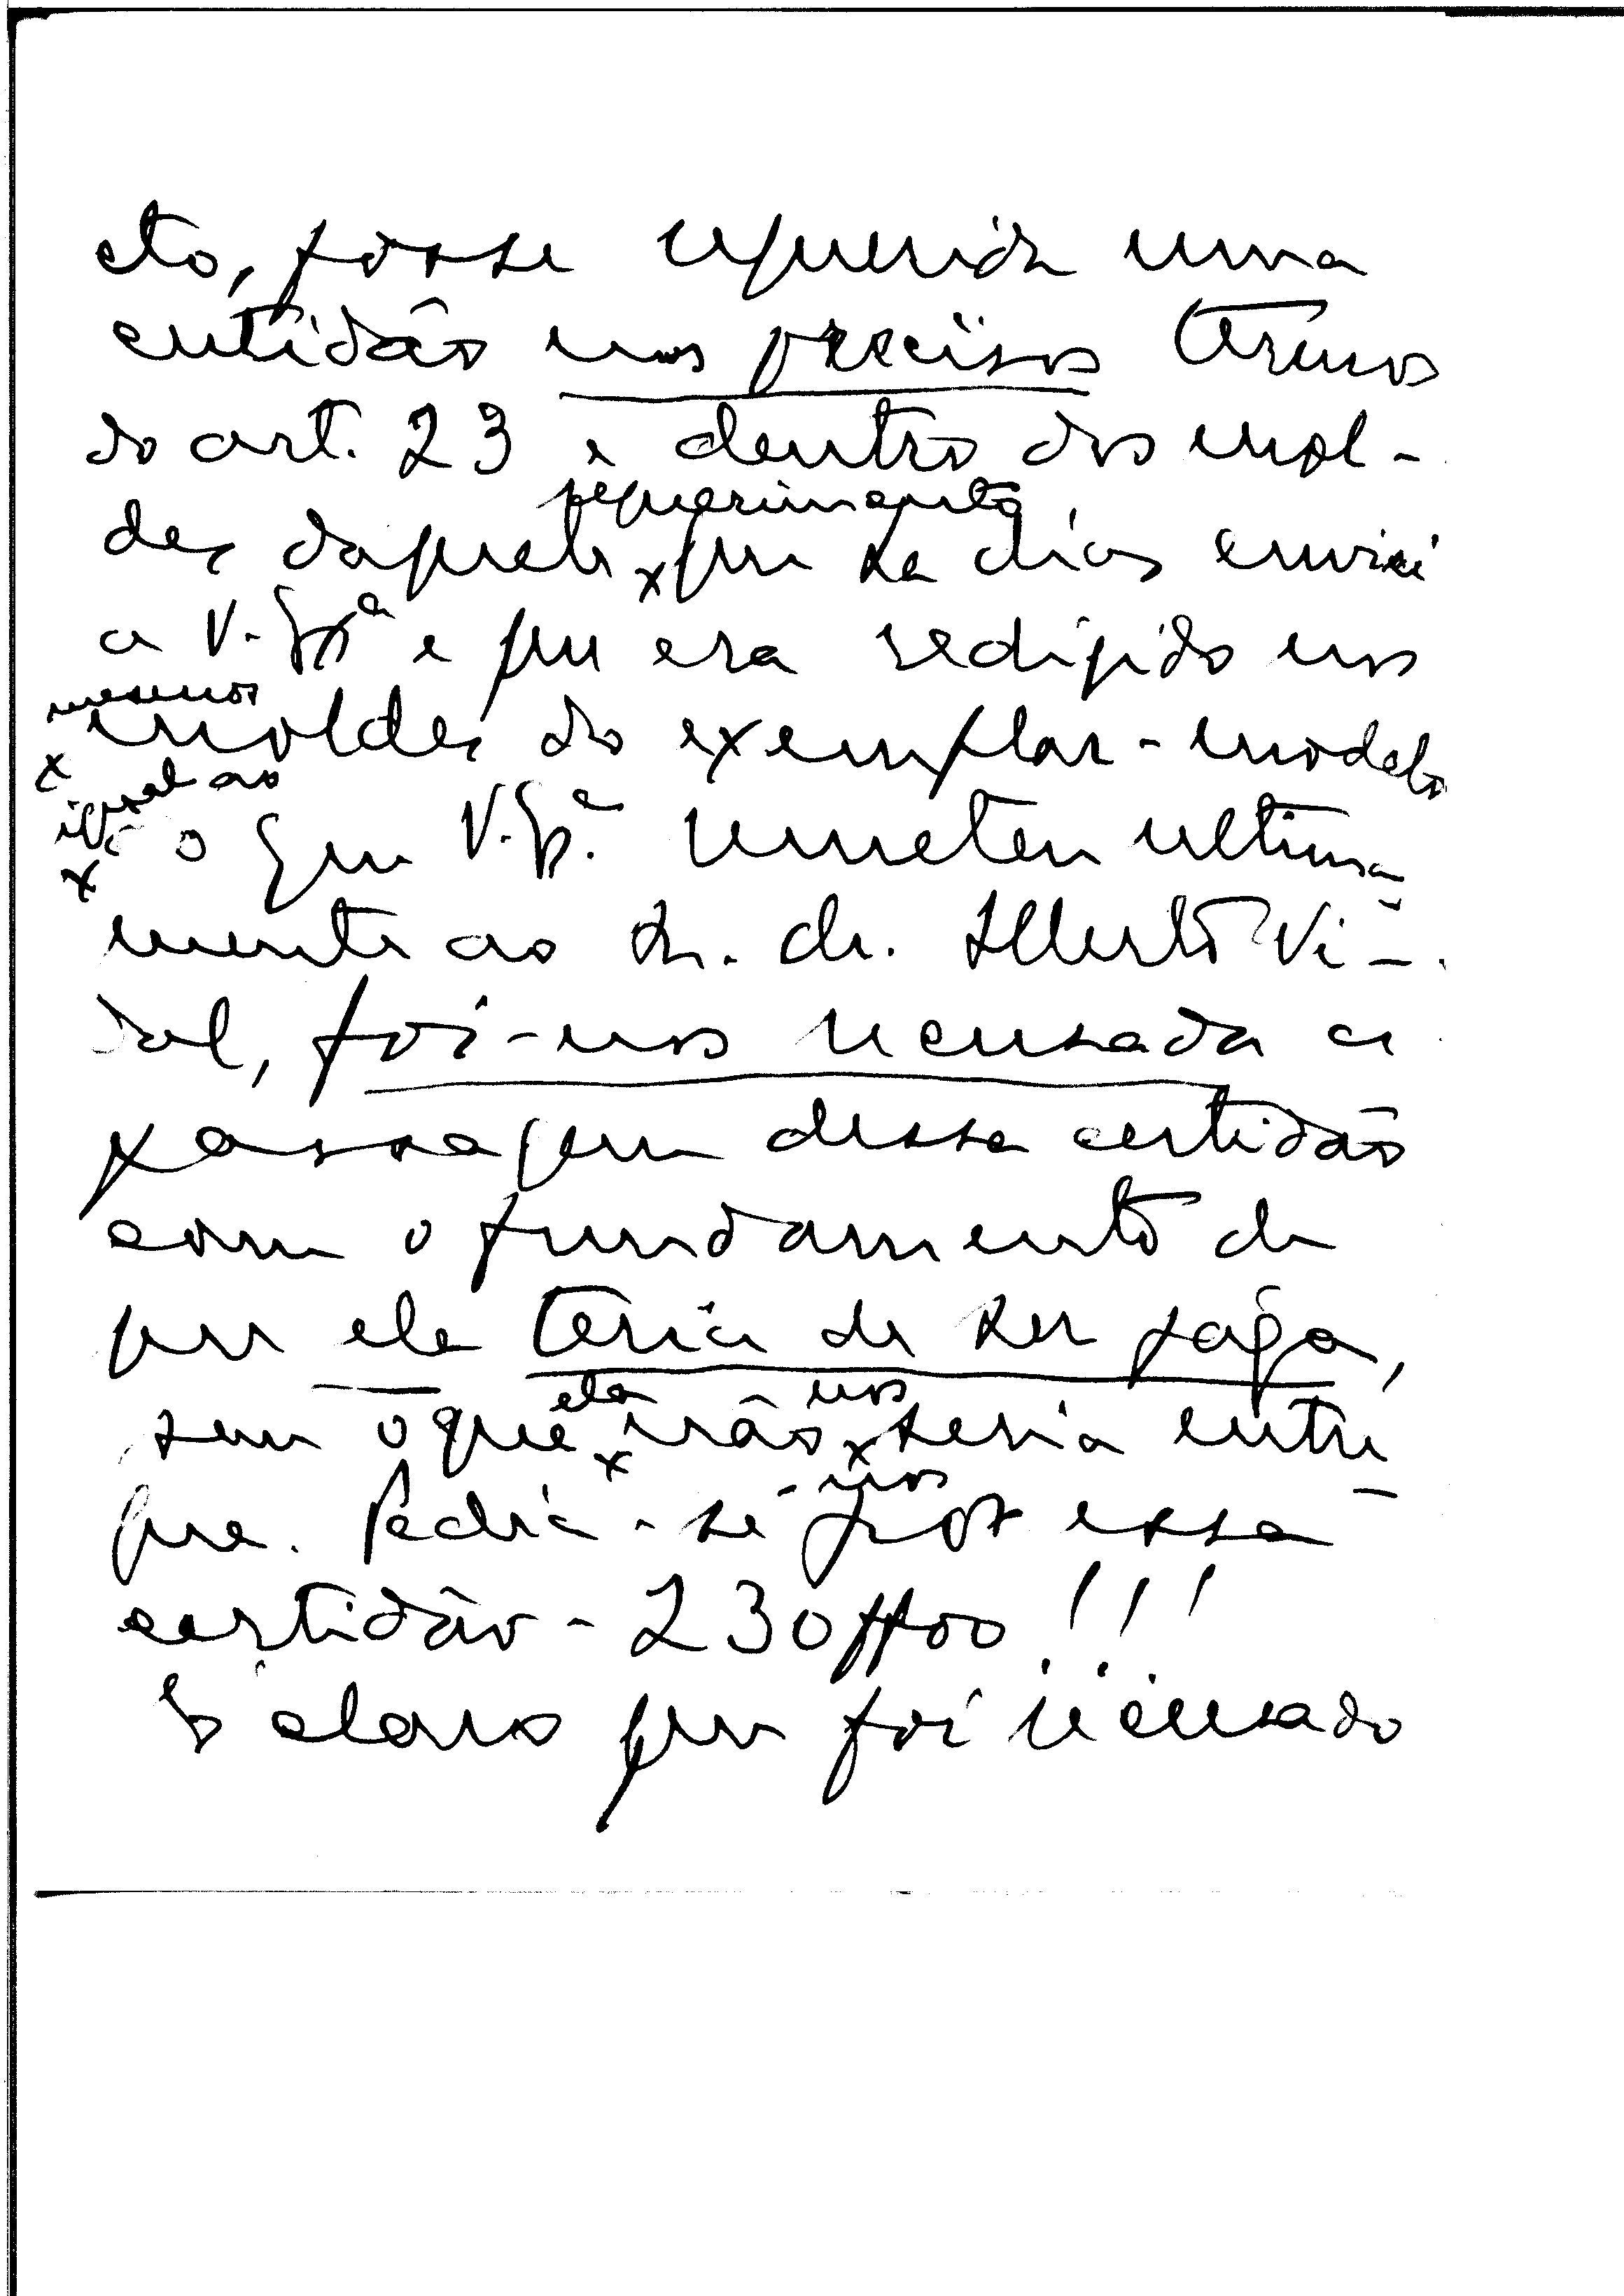 cto, fosse requerida uma
certidão nos precisos termos
do art. 23 e dentro dos mol-
requerimento
des daquele x que ha dias enviei
a V. Exª e que era redigido nos
mesmos
x moldes do exemplar-modelo
igual ao
x o que V. Exª. remeteu ultima-
mente ao Sr. dr. Alberto Vi-
dal, foi-nos recusada a
passagem dessa certidão
com o fundamento de
que ela teria de ser paga,
ela nos
sem o que x não x seria entre-
-nos
gue. Pedia-se por essa
certidão - 230$00!!!
E' claro que foi recusado